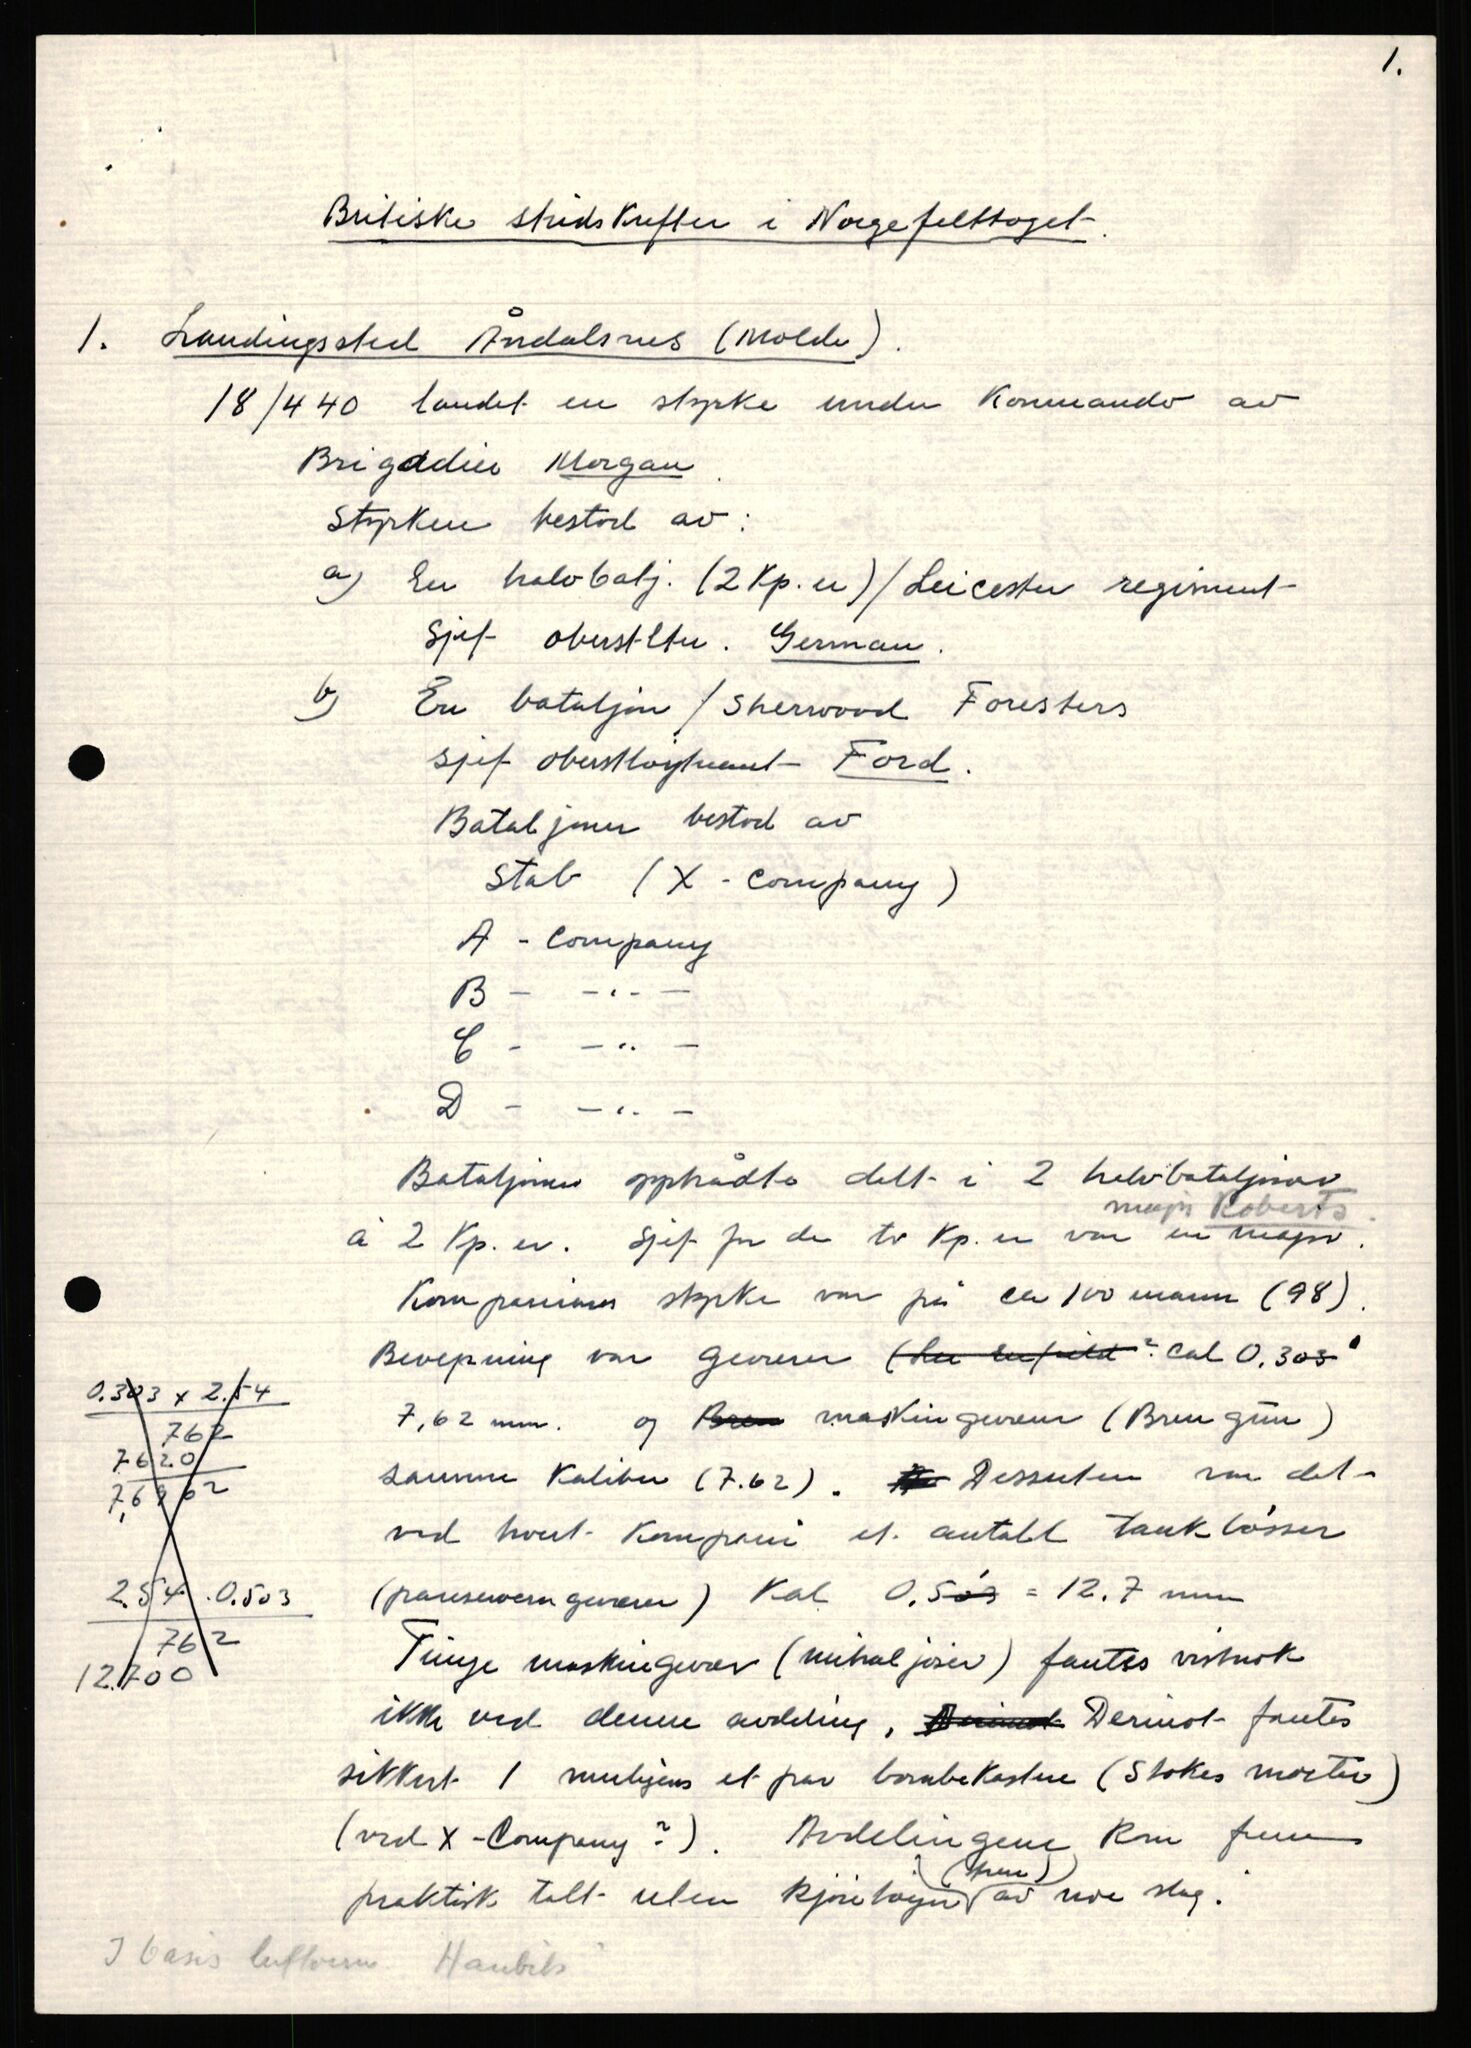 1.
Britiske stridskrefter i Norgefelttoget.
1. Landingssted Åndalsnes (Molde).
18/4 40 landet en styrke under kommando av
Brigadier Morgan.
Styrken bestod av:
a) En halvbatj. (2 Kp.er) / Leicester regiment
Sjef oberstltn. German.
b) En bataljon / Sherwood Foresters
sjef oberstløytnant Ford.
Bataljonen bestod av
Stab (X - Company)
A - Company
B - -"- -
C - -"- -
D - -"- -
Bataljonen opptrådte delt i 2 halvbataljoner
major Roberts.
à 2 Kp.er. Sjef for de to Kp.er var en major.
Kompanienes styrke var på ca 100 mann (98).
Bevepning var geværer (Lee Enfield? Cal 0.303"
7,62 mm. og Bren maskingevær (Bren gün)
samme kaliber (7.62). Dessuten var det
ved hvert kompani et antall tankbösser
(panservern geværer) Kal 0.503 = 12.7 mm
Tunge maskingevær (mitraljøser) fantes visstnok
ikke ved denne avdeling, Derimot Derimot fantes
sikkert 1 muligens et par bombekastere (Stokes morter)
(ved X - Company?). Avdelingene kom frem
praktisk talt uten kjøretøyer (tren) av noe slag.
I basis luftvern Haubits
0.303 x 2.54
762
7620
7,6962
2.54 . 0.503
762
12.700